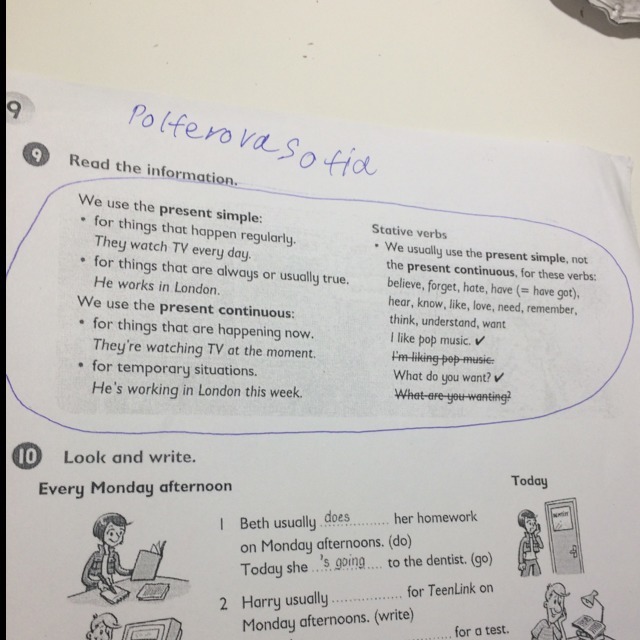 9
Polferova Sofia
9 Read the information.
We use the present simple:
• for things that happen regularly.
They watch TV every day.
• for things that are always or usually true.
He works in London.
We use the present continuous:
• for things that are happening now.
They're watching TV at the moment.
• for temporary situations.
He's working in London this week.
Stative verbs
• We usually use the present simple, not
the present continuous, for these verbs:
believe, forget, hate, have (= have got),
hear, know, like, love, need, remember,
think, understand, want
I like pop music. ✔
I'm liking pop music.
What do you want? ✔
What are you wanting?
10 Look and write.
Every Monday afternoon
Today
1 Beth usually does her homework
on Monday afternoons. (do)
Today she 's going to the dentist. (go)
2 Harry usually .............. for TeenLink on
Monday afternoons. (write)
.............. for a test.